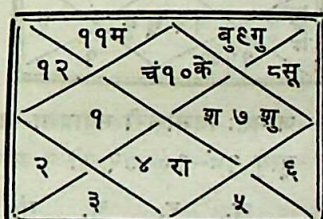 ११मं बु९गु
१२ चं१०के ८सू
१ श ७ शु
२ ४ रा ६
३ ५